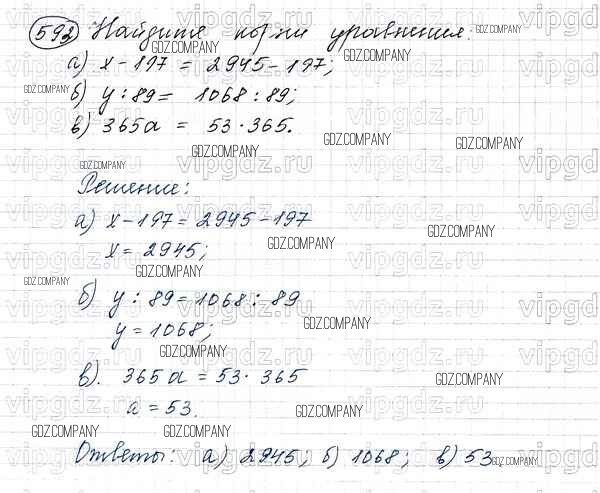 592 Найдите корни уравнения:
а) x - 197 = 2945 - 197;
б) y : 89 = 1068 : 89;
в) 365a = 53 · 365.
Решение:
а) x - 197 = 2945 - 197
x = 2945;
б) y : 89 = 1068 : 89
y = 1068;
в). 365a = 53 · 365
a = 53.
Ответы: а) 2945; б) 1068; в) 53